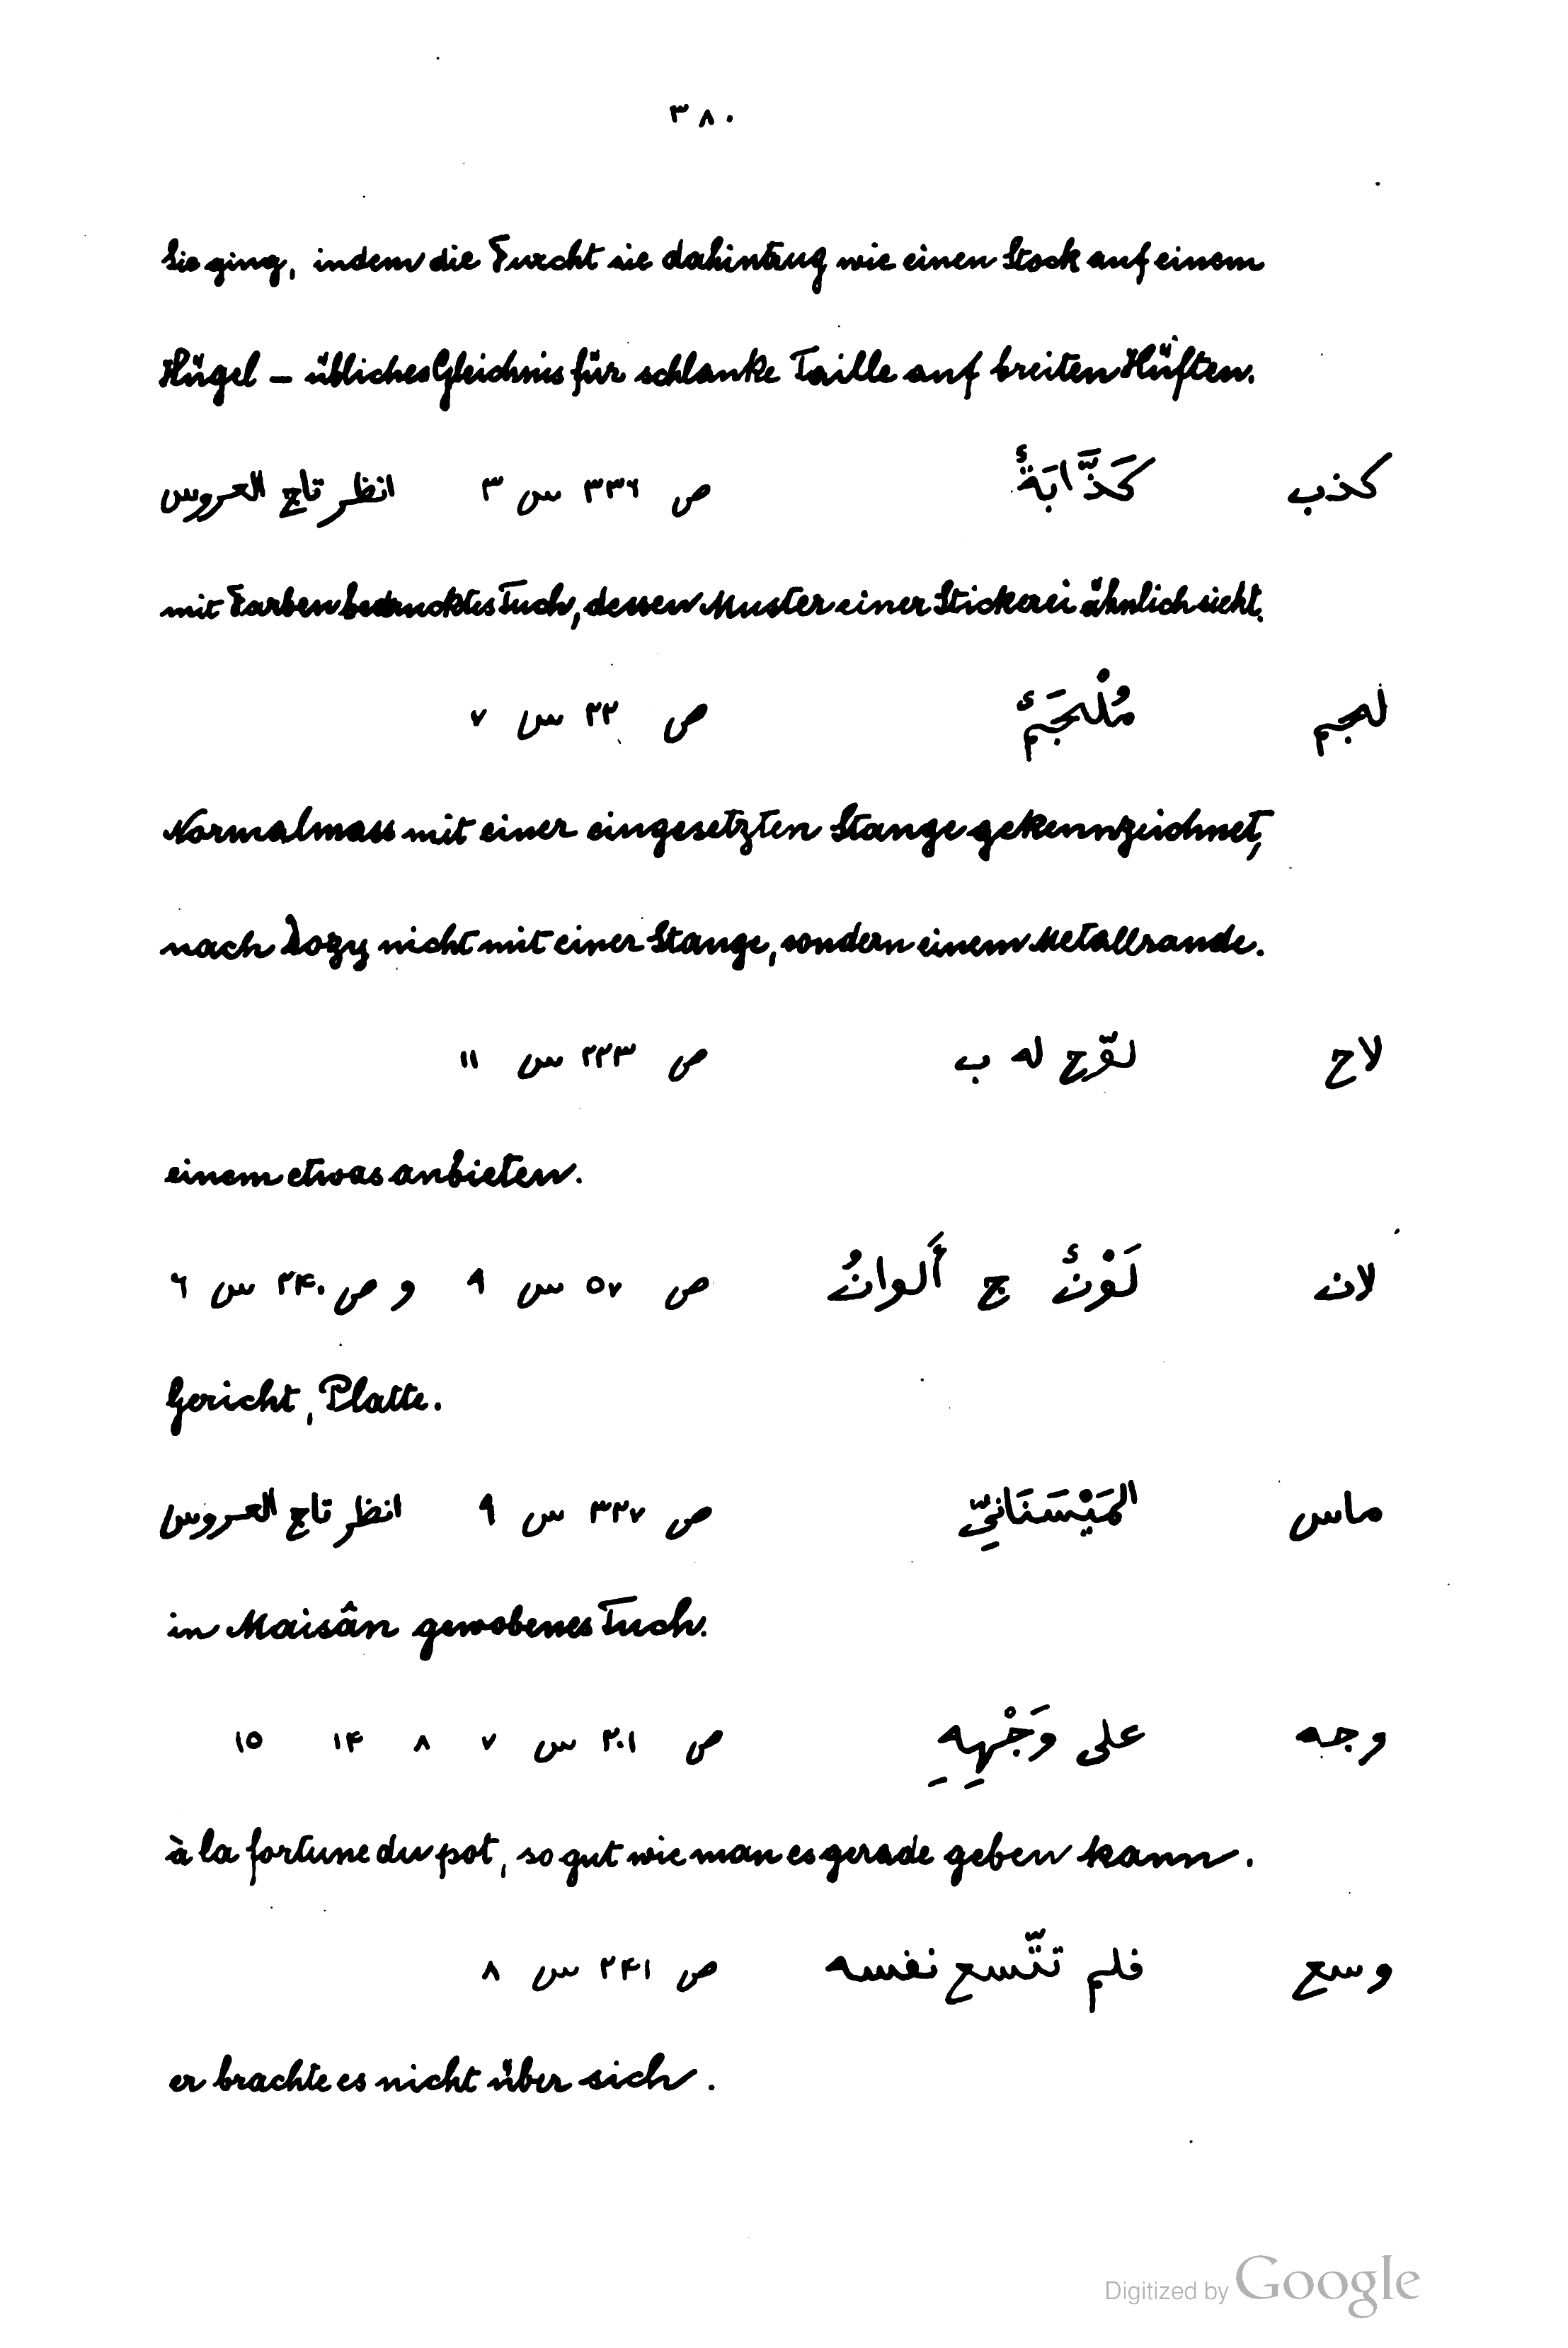 ٣٨٠
Sie ging, indem die Furcht sie dahintrug wie einen Stock auf einem
Hügel – übliches Gleichnis für schlanke Taille auf breiten Hüften.
كذب كَذَّابَةٌ ص ٣٣٦ س ٣ انظر تاج العروس
mit Farben bedrucktes Tuch, dessen Muster einer Stickerei ähnlich sieht.
لجم مُلْجَمٌ ص ٢٢ س ٧
Normalmass mit einer eingesetzten Stange gekennzeichnet,
nach Dozy nicht mit einer Stange, sondern einem Metallrande.
لاح لوّح له ب ص ٢٢٣ س ١١
einem etwas anbieten.
لان لَوْنٌ ج أَلوانُ ص ٥٧ س ٩ و ص ٢۴٠ س ٦
Gericht, Platte.
ماس المَيْسَنَانِيّ ص ٣٢٧ س ٩ انظر تاج العروس
in Maisân gewobenes Tuch.
وجه على وَجْهِهِ ص ٢٠١ س ٧ ٨ ١۴ ١٥
à la fortune du pot, so gut wie man es gerade geben kann.
وسع فلم تتّسع نفسه ص ٢۴١ س ٨
er brachte es nicht über sich.
Digitized by Google